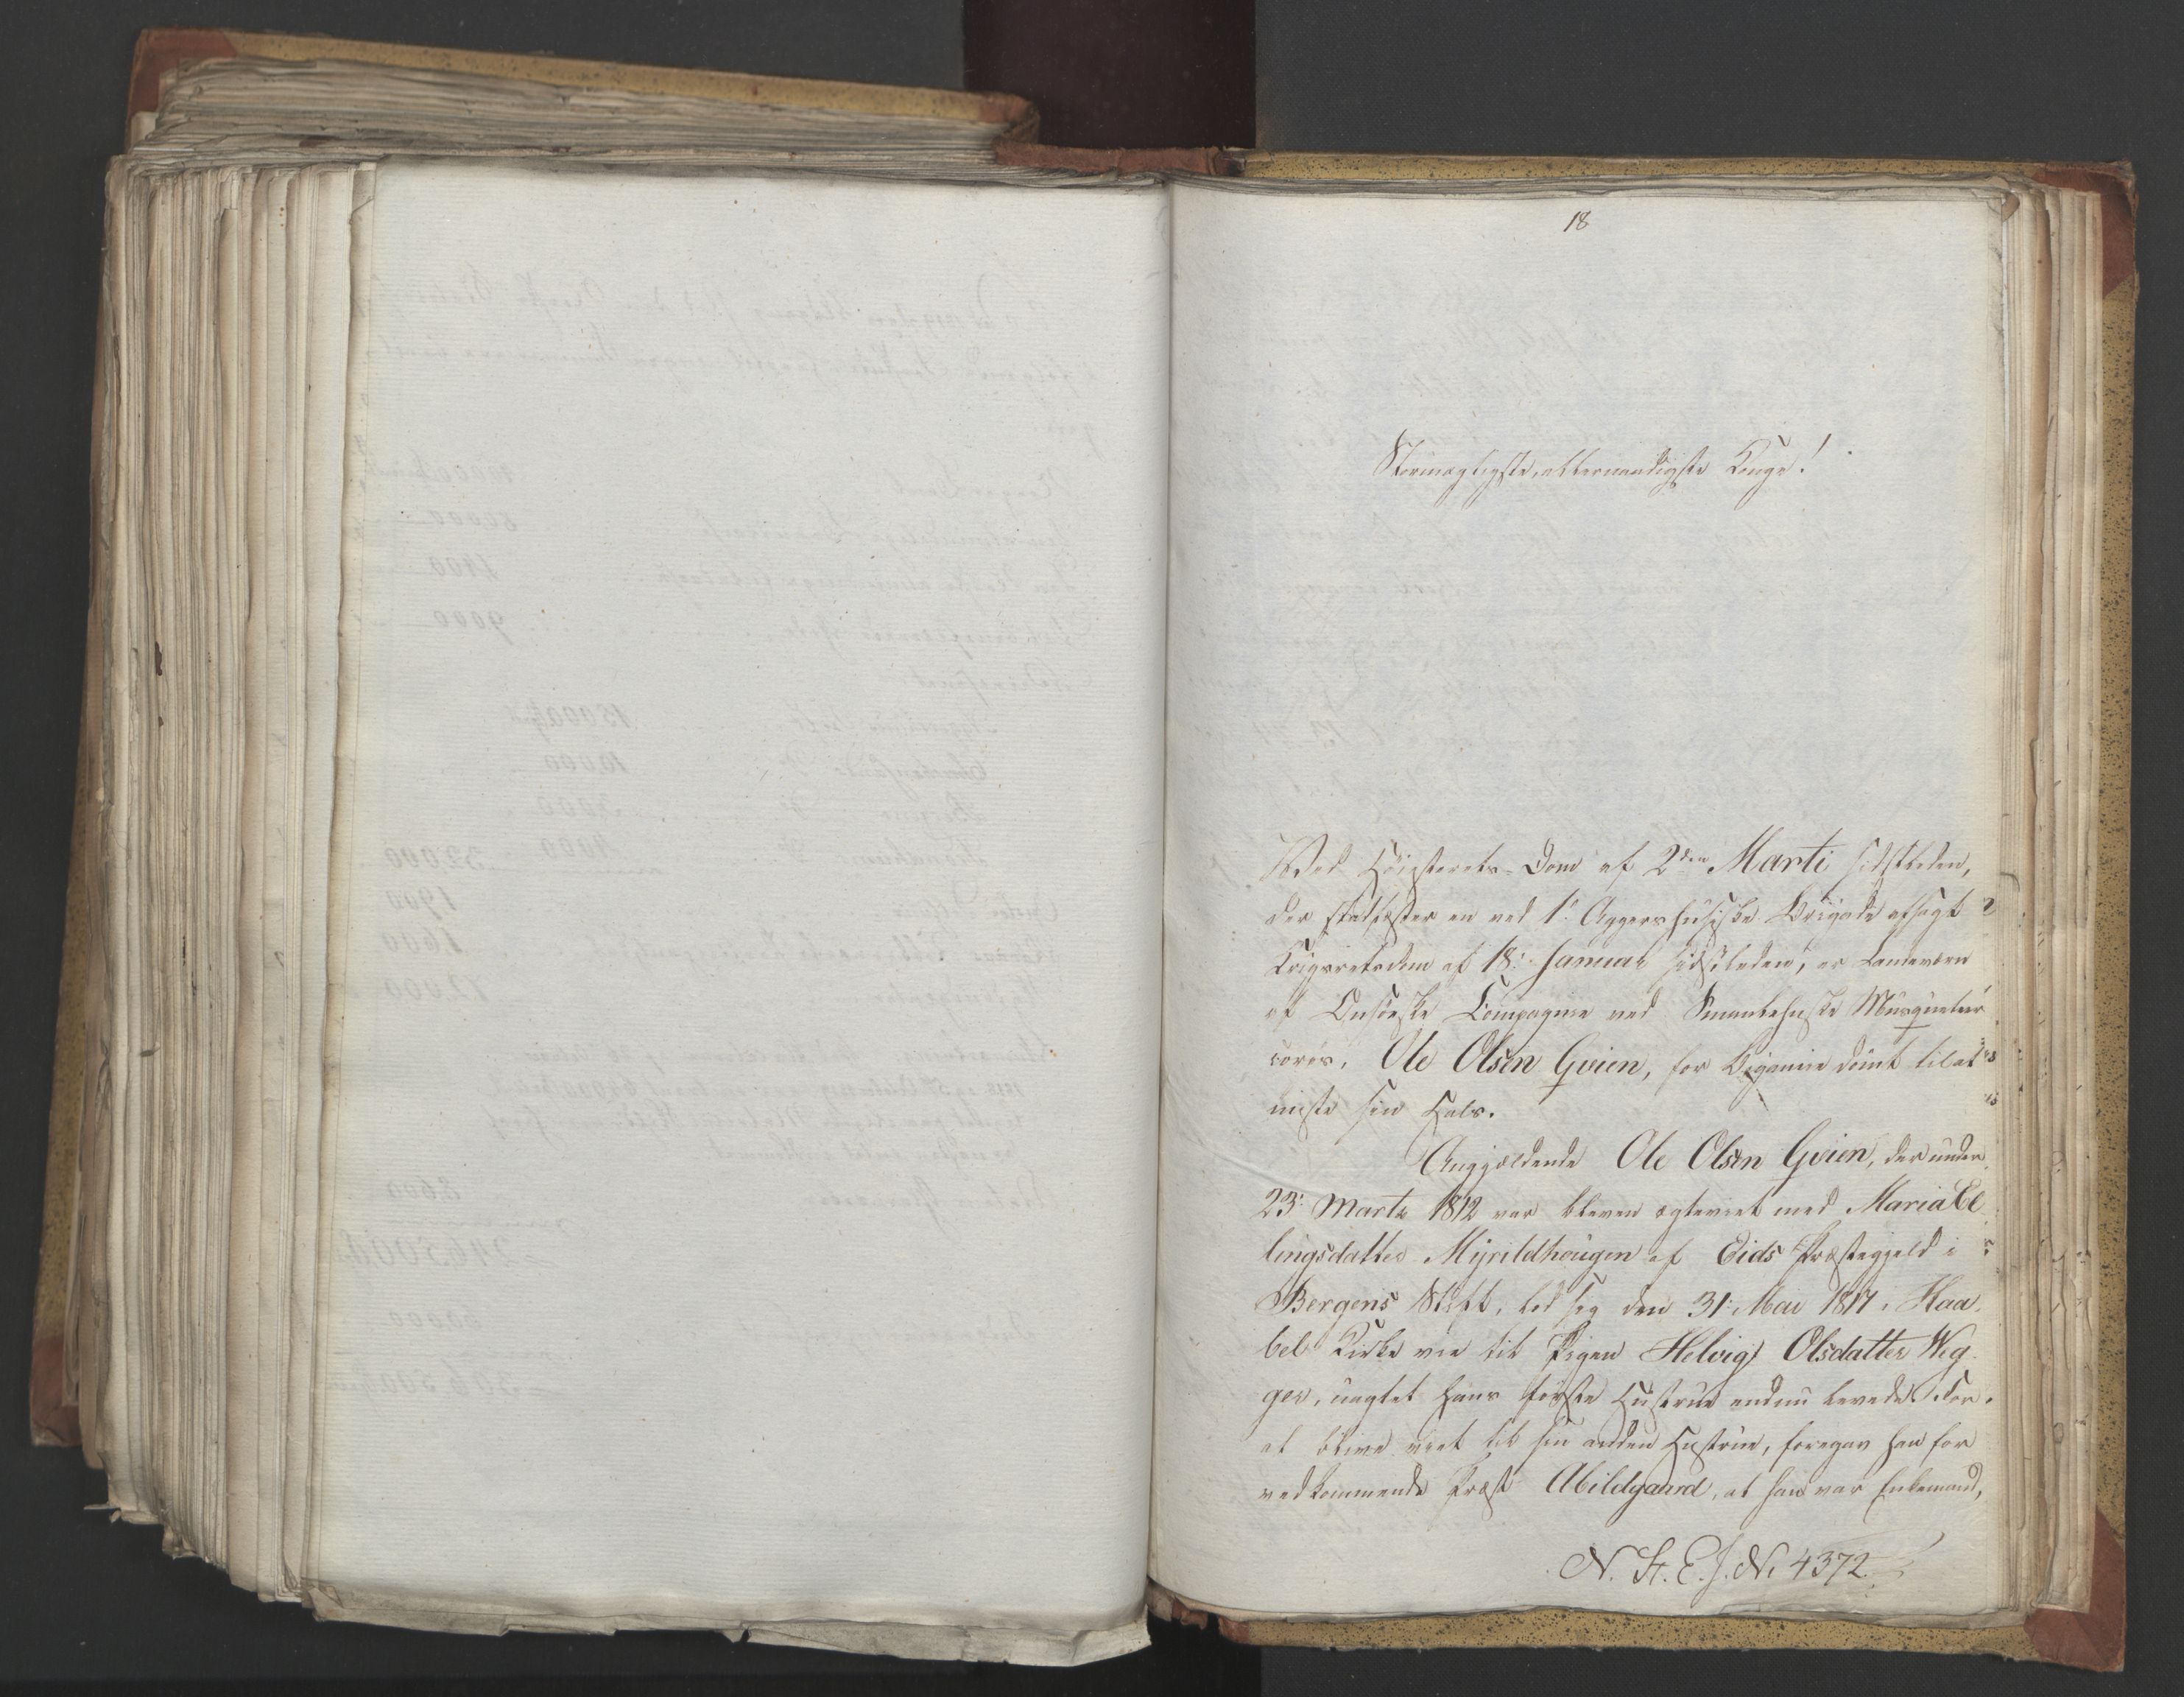 18
Stormægtigste, allernaadigste Konge!
Ved Høiesterets-Dom af 2den Marti sidstleden,
der stadfæster en ved 1ste Aggershuusiske Brigade afsagt
Krigsretsdom af 18de Januar sidstleden, er Landværn
af Onsøeske Compagnie ved Smaalehnske Musqueteer
corps, Ole Olsen Gvien, for Bigamie dømt til at
miste sin Hals.
Angjældende Ole Olsen Gvien, der under
23de Marts 1812 var bleven ægteviet med Maria El
lingsdatter Myrildhougen af Eids Præstegjeld i
Bergens Stift, lod sig den 31te Mai 1817 i Haa
bel Kirke vie til Pigen Helvig Olsdatter Weg
ger, uagtet hans første Hustrue endnu levede. For
at blive viet til sin anden Hustrue, foregav han for
vedkommende Præst Abildgaard, at han var Enkemand,
N. St. E. J. No 4372